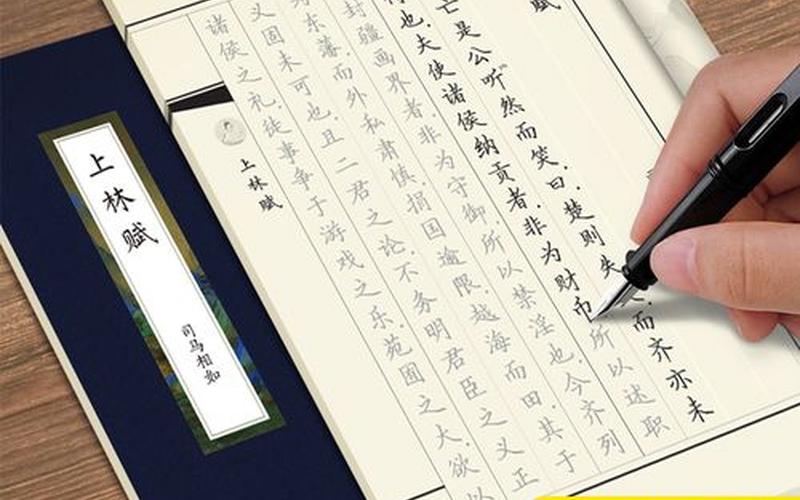 赋
亡是公听然而笑,曰,楚则失,而齐亦未
也,夫使诸侯纳贡者,非为财币所以述职
封疆画界者,非为守御,所以禁淫也,今齐列
东藩而外私肃慎,捐国逾限,越海而田,其于
义固未可也,且二君之论,不务明君臣之义正
诸侯之礼,徒事争于游戏之乐,苑囿之大,欲以
上林赋
上林赋
司马相如